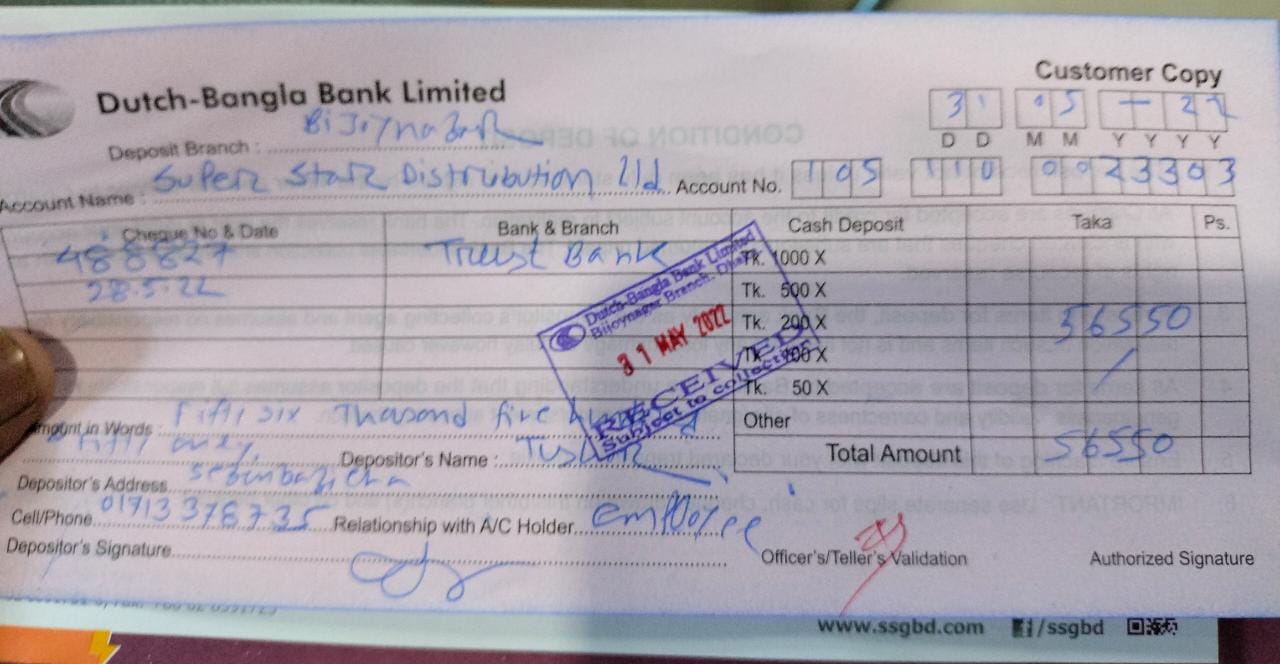 Customer Copy
Dutch-Bangla Bank Limited
31 05 - 22
D D M M Y Y Y Y
Deposit Branch : Bijoynagar
Account Name : Super Star Distribution Ltd. Account No. 105 110 0023303
Cheque No & Date Bank & Branch Cash Deposit Taka Ps.
488827 Trust Bank Tk. 1000 X
28.5.22 Tk. 500 X
Tk. 200 X 56550
Tk. 100 X
Tk. 50 X
Other
Total Amount 56550
Dutch-Bangla Bank Limited
Bijoynagar Branch, Dhaka
31 MAY 2022
RECEIVED
Subject to collection
Amount in Words : Fifti six Thasand five hundred
fifti only,
Depositor's Name :
Depositor's Address
Cell/Phone 01713376735 Relationship with A/C Holder emploee
Depositor's Signature
Officer's/Teller's Validation Authorized Signature
www.ssgbd.com /ssgbd